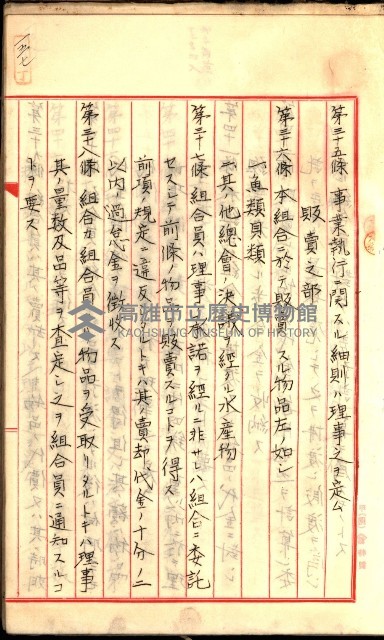 第三十五條 事業執行ニ関スル細則ハ理事之ヲ定ム
販賣之部
第三十六條 本組合ニ於テ販賣スル物品左ノ如シ
一、魚類貝類
一、其ノ他總會ノ決議ヲ經タル水産物
第三十七條 組合員ハ理事ノ承諾ヲ經ルニ非サレハ組合ニ委託
セスシテ前條ノ物品ヲ販賣スルコトヲ得ス
前項ノ規定ニ違反シタルトキハ其ノ賣却代金ノ十分ノ二
以内ノ過怠金ヲ徴收ス
第三十八條 組合カ組合員ヨリ物品ヲ受取リタルトキハ理事
其ノ量数及品等ヲ査定シ之ヲ組合員ニ通知スルコ
トヲ要ス
高雄市立歷史博物館
KAOHSIUNG MUSEUM OF HISTORY